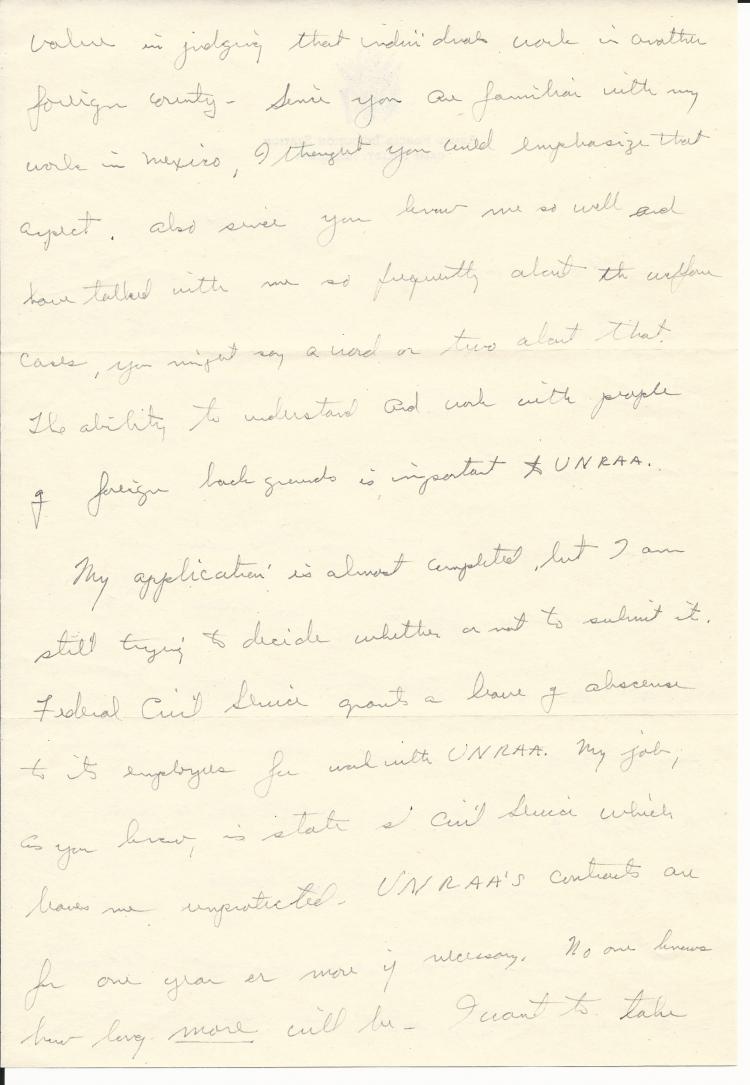 value in judging that individuals work in another
foreign county - Since you are familiar with my
work in Mexico, I thought you could emphasize that
aspect. Also since you know me so well and
have talked with me so frequently about the welfare
cases, you might say a word or two about that.
The ability to understand and work with people
of foreign backgrounds is important to UNRAA.
My application is almost completed, but I am
still trying to decide whether or not to submit it.
Federal Civil Service grants a leave of abscense
to its employees for work with UNRAA. My job,
as you know, is state Civil Service which
leaves me unprotected - UNRAA'S contracts are
for one year or more if necessary. No one knows
how long more will be - I want to take